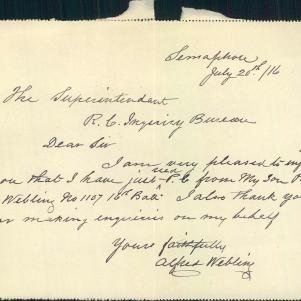 Semaphore
July 20th/16
The Superintendant
R. C. Inquiry Bureau
Dear Sir
I am very pleased to
you that I have just recd P.C from My Son
Webling No 1107 16th Batt. I also thank you
making inquiries on my behalf
Yours faithfully
Alfred Webling